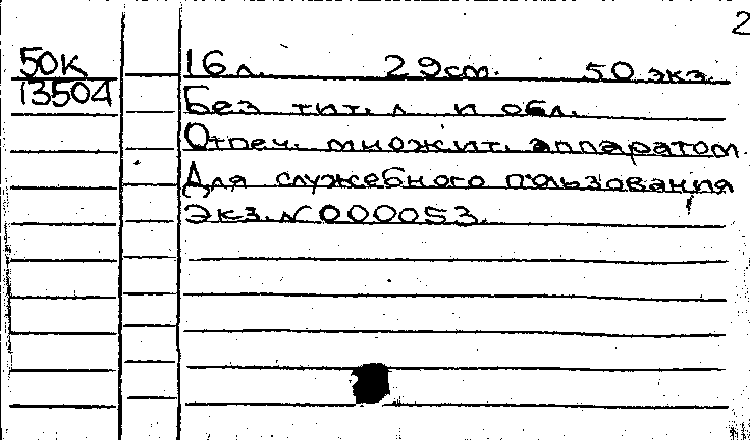 2
50К 16 л. 29 см. 50 экз.
13504 Без тит. л и обл.
Отпеч. множит. аппаратом.
Для служебного пользования
Экз. N 000053.